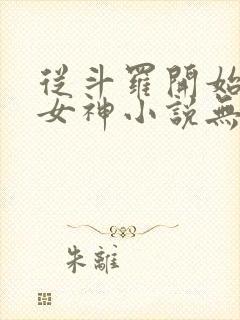 從斗羅開始
女神小說無
朱離